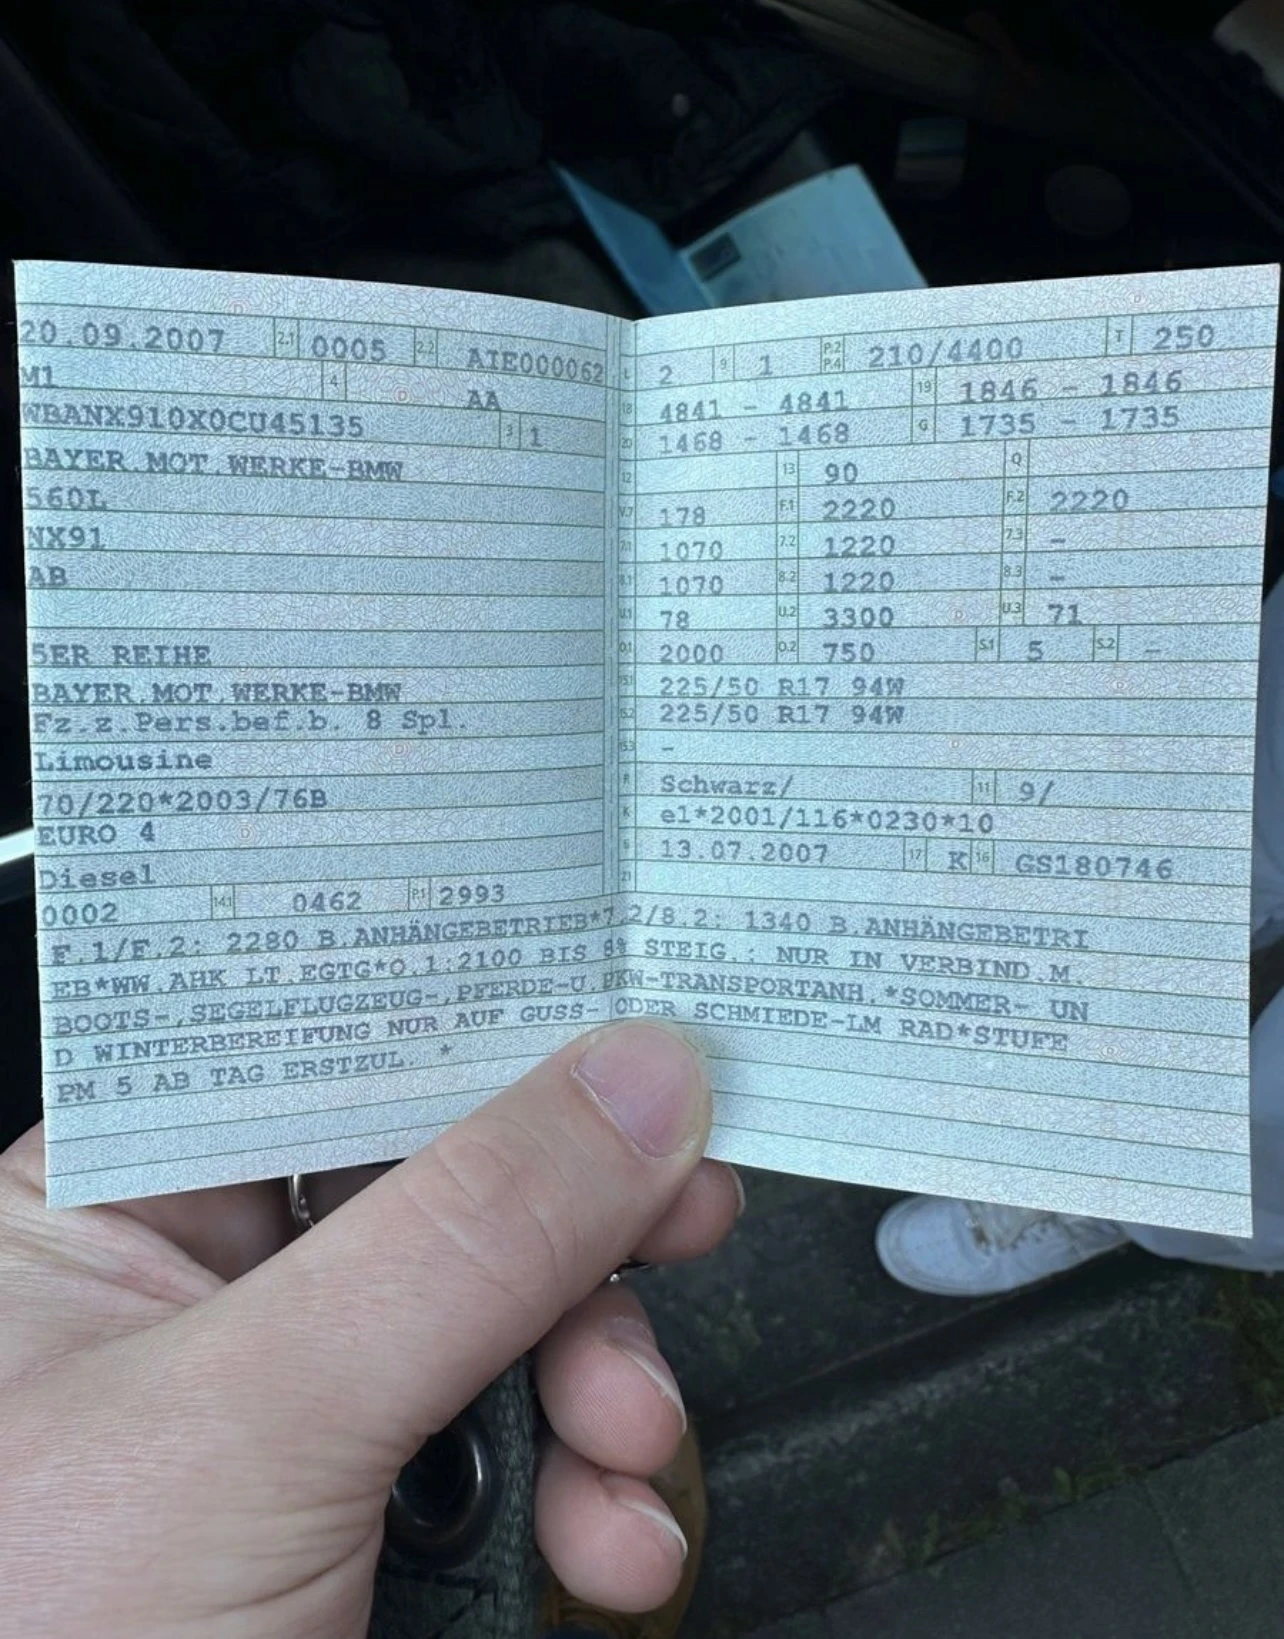 20.09.2007 2.1 0005 2.2 AIE000062
M1 4 AA
WBANX910X0CU45135 3 1
BAYER.MOT.WERKE-BMW
560L
NX91
AB
5ER REIHE
BAYER.MOT.WERKE-BMW
Fz.z.Pers.bef.b. 8 Spl.
Limousine
70/220*2003/76B
EURO 4
Diesel
0002 14.1 0462 P.1 2993
L 2 9 1 P.2 P.4 210/4400 T 250
18 4841 - 4841 19 1846 - 1846
20 1468 - 1468 G 1735 - 1735
12 13 90 Q
V.7 178 F.1 2220 F.2 2220
7.1 1070 7.2 1220 7.3 -
8.1 1070 8.2 1220 8.3 -
U.1 78 U.2 3300 U.3 71
O.1 2000 O.2 750 S.1 5 S.2 -
15.1 225/50 R17 94W
15.2 225/50 R17 94W
15.3 -
R Schwarz/ 11 9/
K e1*2001/116*0230*10
6 13.07.2007 17 K 16 GS180746
21
F.1/F.2: 2280 B.ANHÄNGEBETRIEB*7.2/8.2: 1340 B.ANHÄNGEBETRI
EB*WW.AHK LT.EGTG*O.1:2100 BIS 8% STEIG.: NUR IN VERBIND.M.
BOOTS-,SEGELFLUGZEUG-,PFERDE-U.PKW-TRANSPORTANH.*SOMMER- UN
D WINTERBEREIFUNG NUR AUF GUSS- ODER SCHMIEDE-LM RAD*STUFE
PM 5 AB TAG ERSTZUL. *